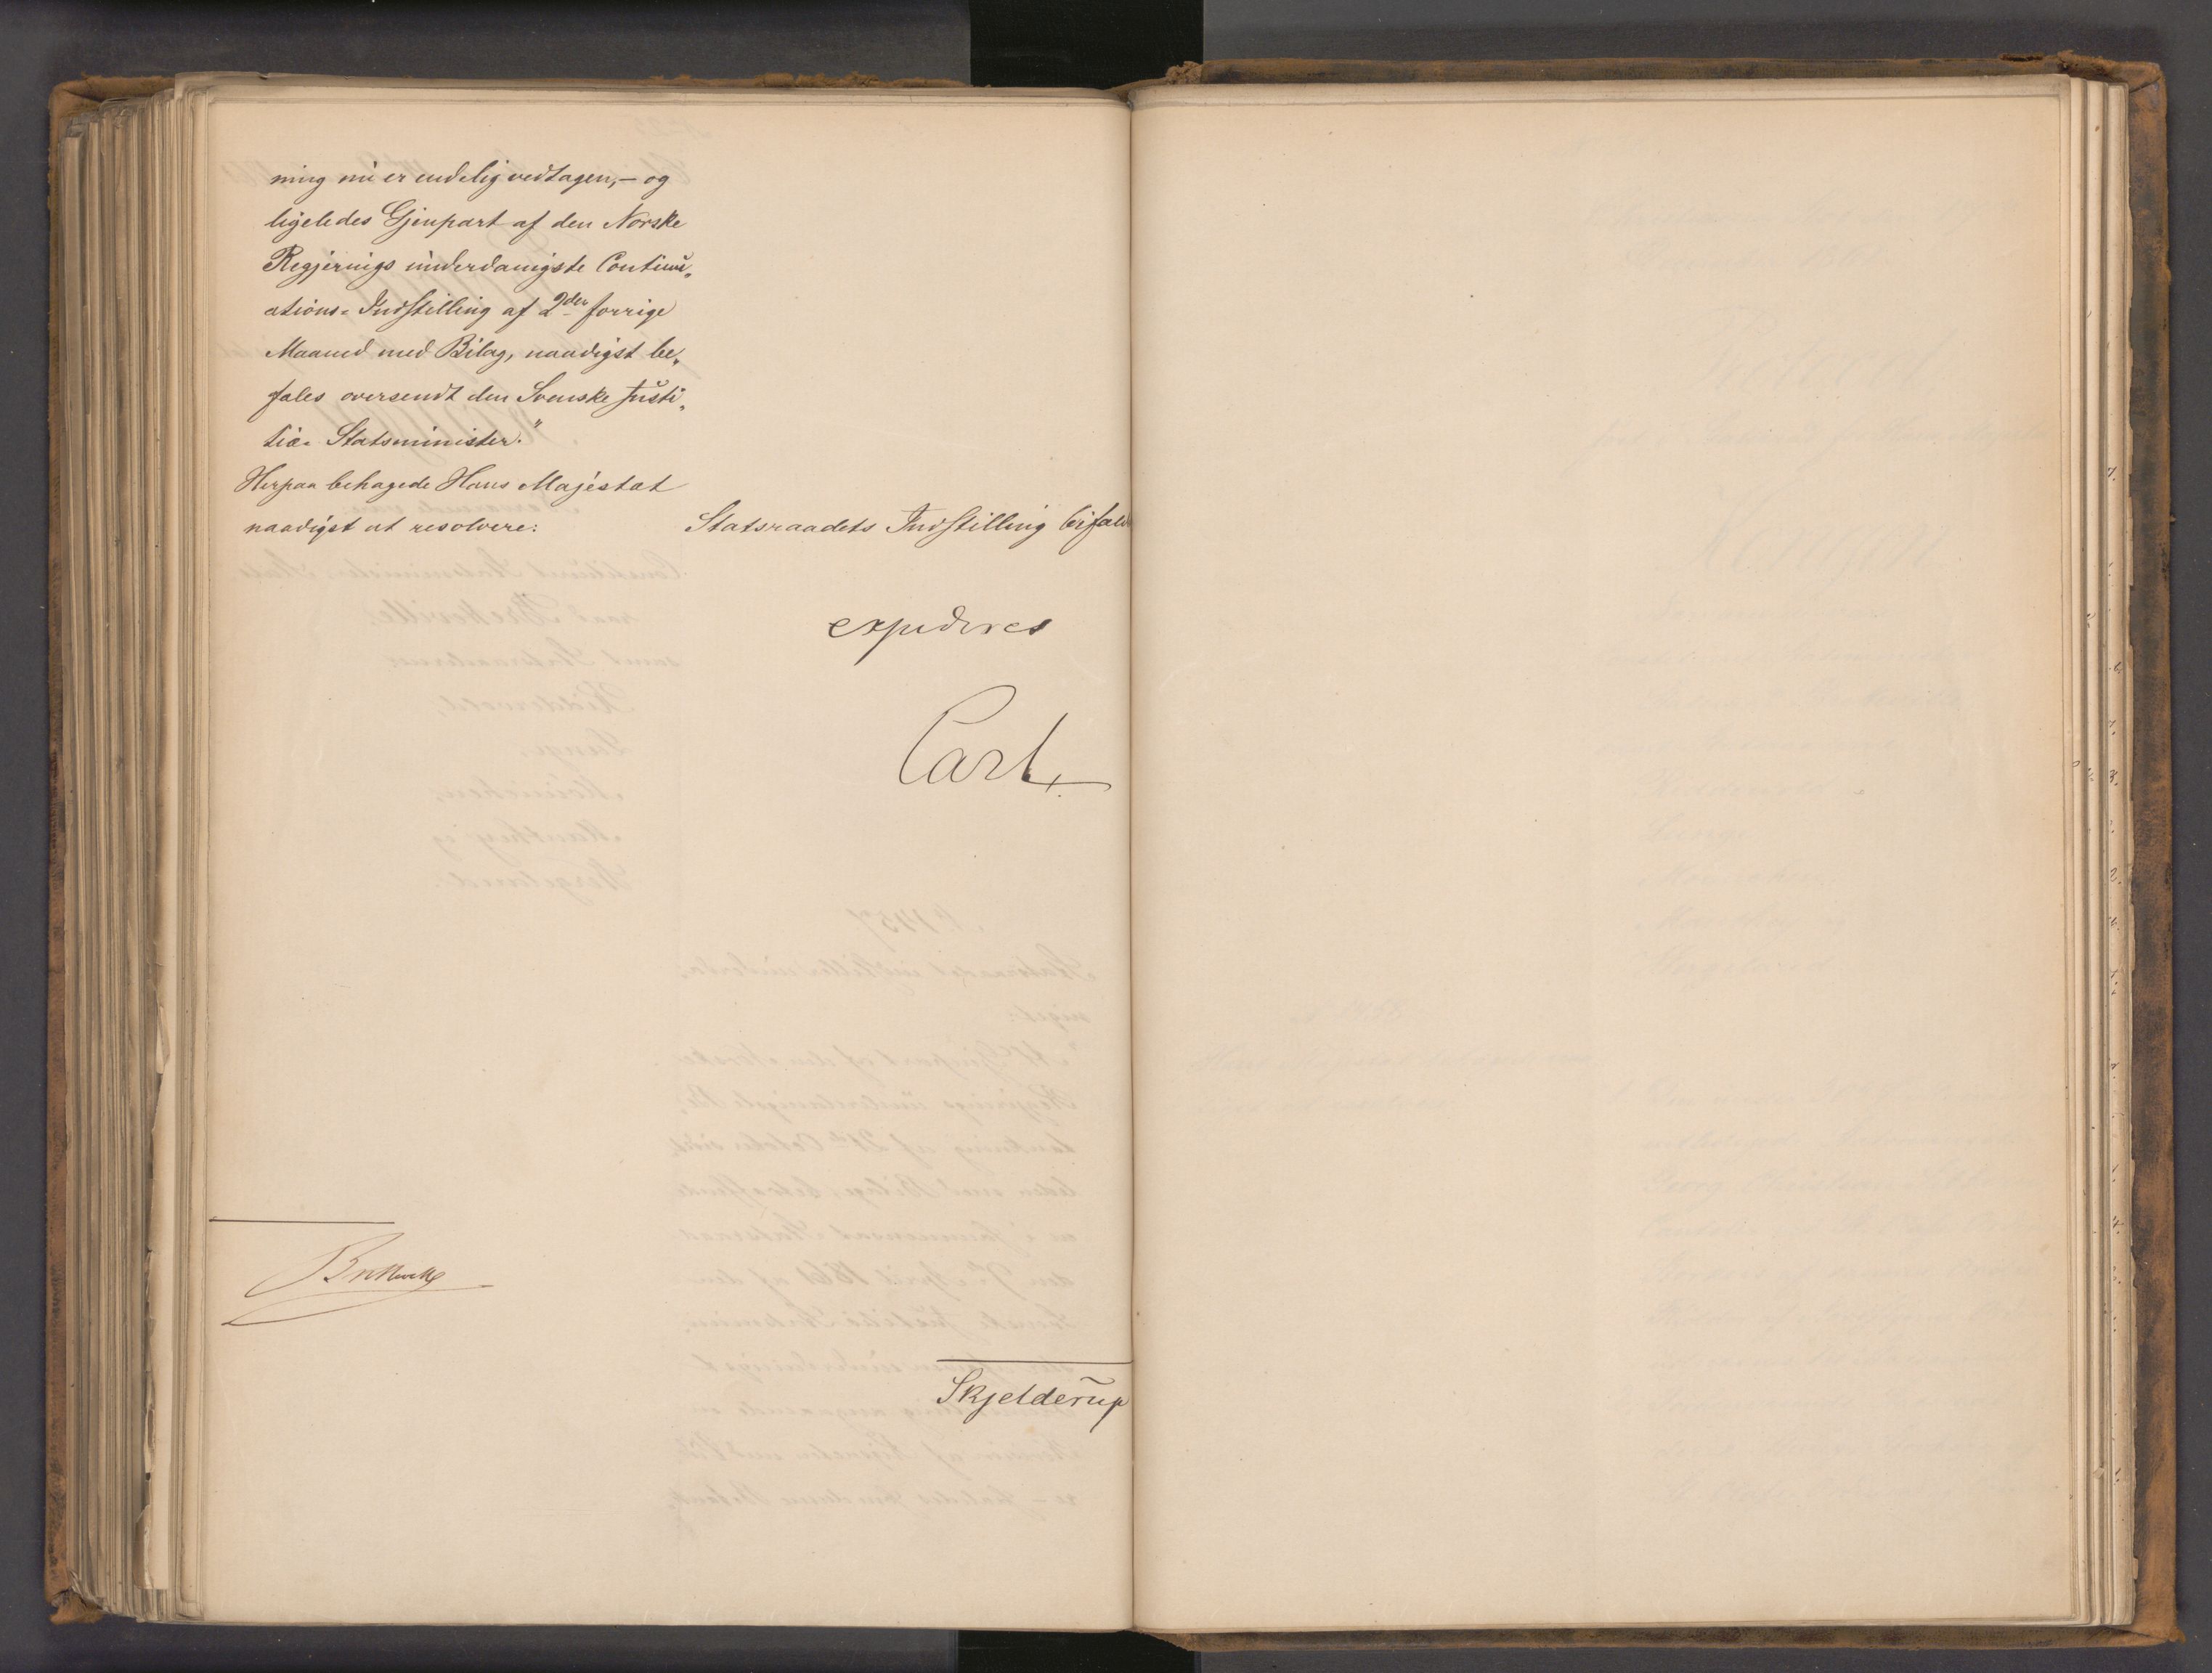 ning nu er endelig vedtagen, – og
ligeledes Gjenpart af den Norske
Regjerings underdanigste Continu„
ations- Indstilling af 2den forrige
Maaned med Bilag, naadigst be„
fales oversendt den Svenske Justi„
tiæ- Statsminister."
Herpaa behagede Hans Majestæt
naadigst at resolvere:
Statsraadets Indstilling bifaldes
expederes
Carl
Bretteville
Skjelderup